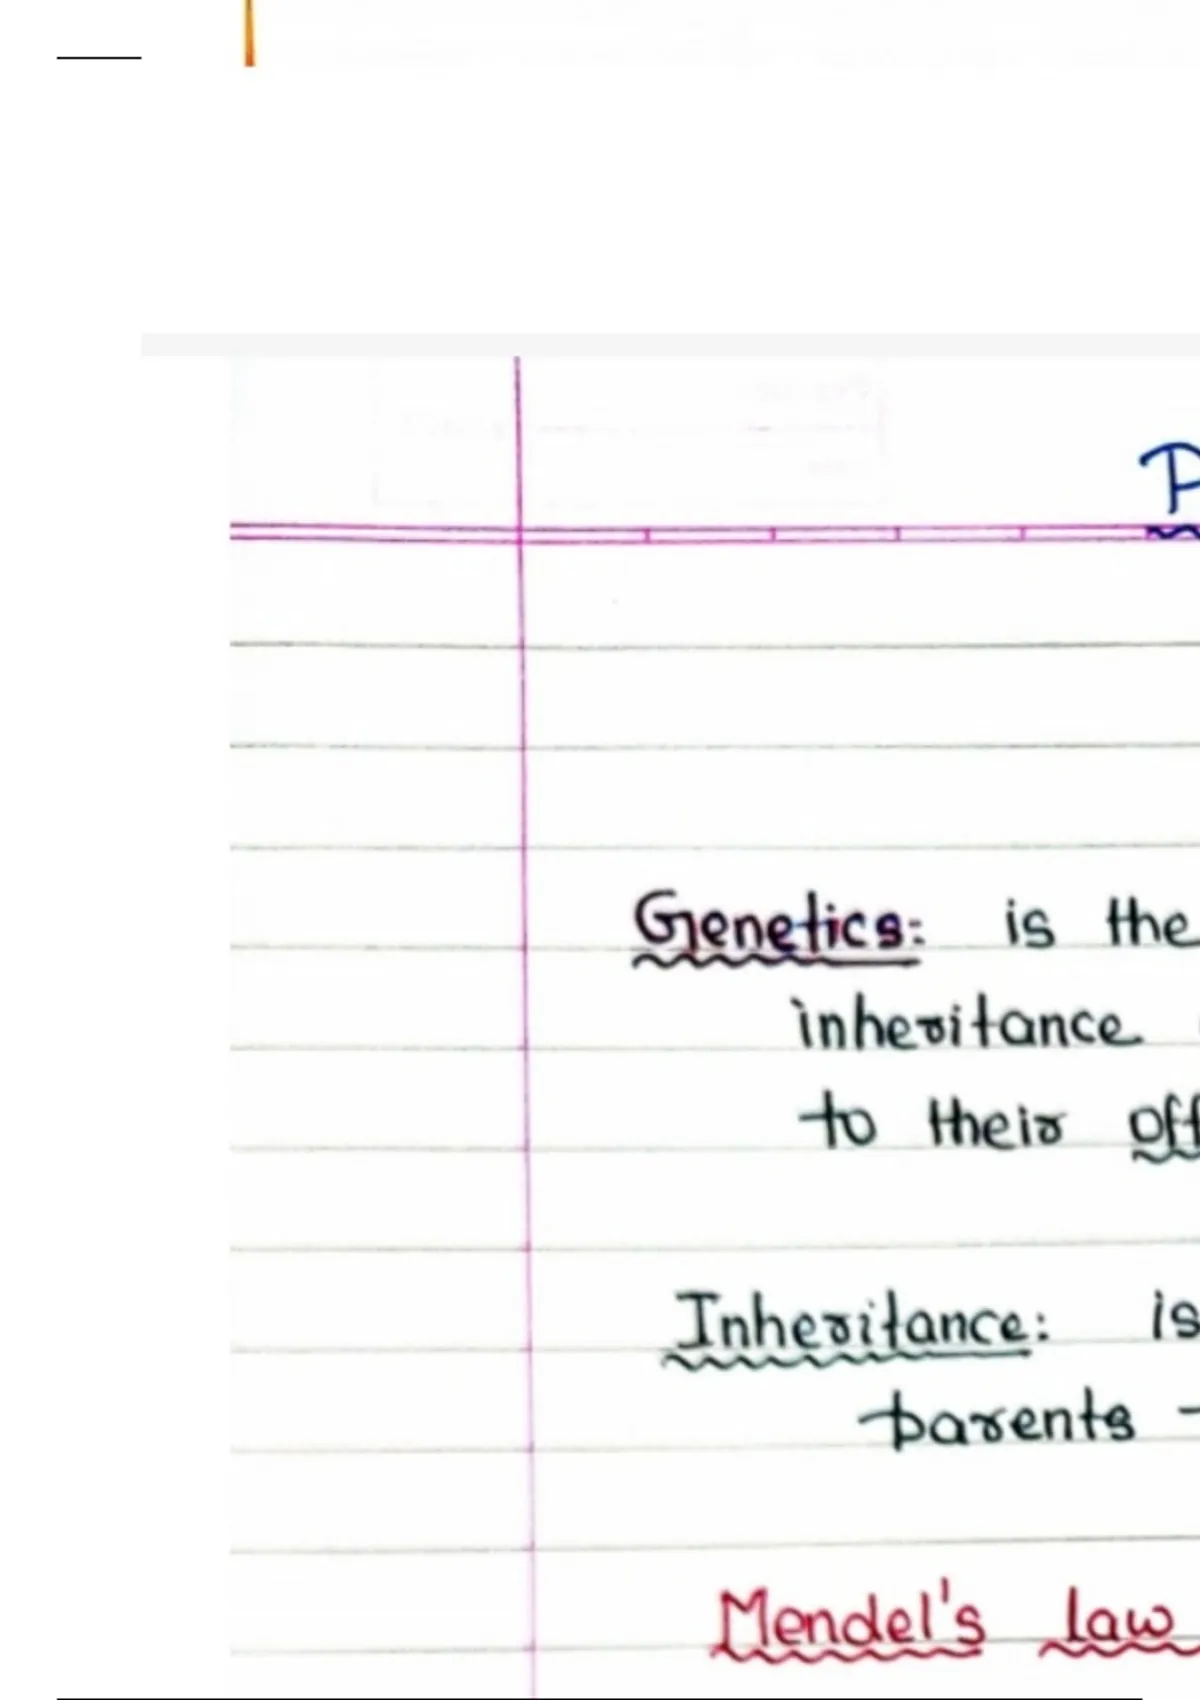 P
Genetics: is the
inheritance
to their off
Inheritance: is
parents -
Mendel's law